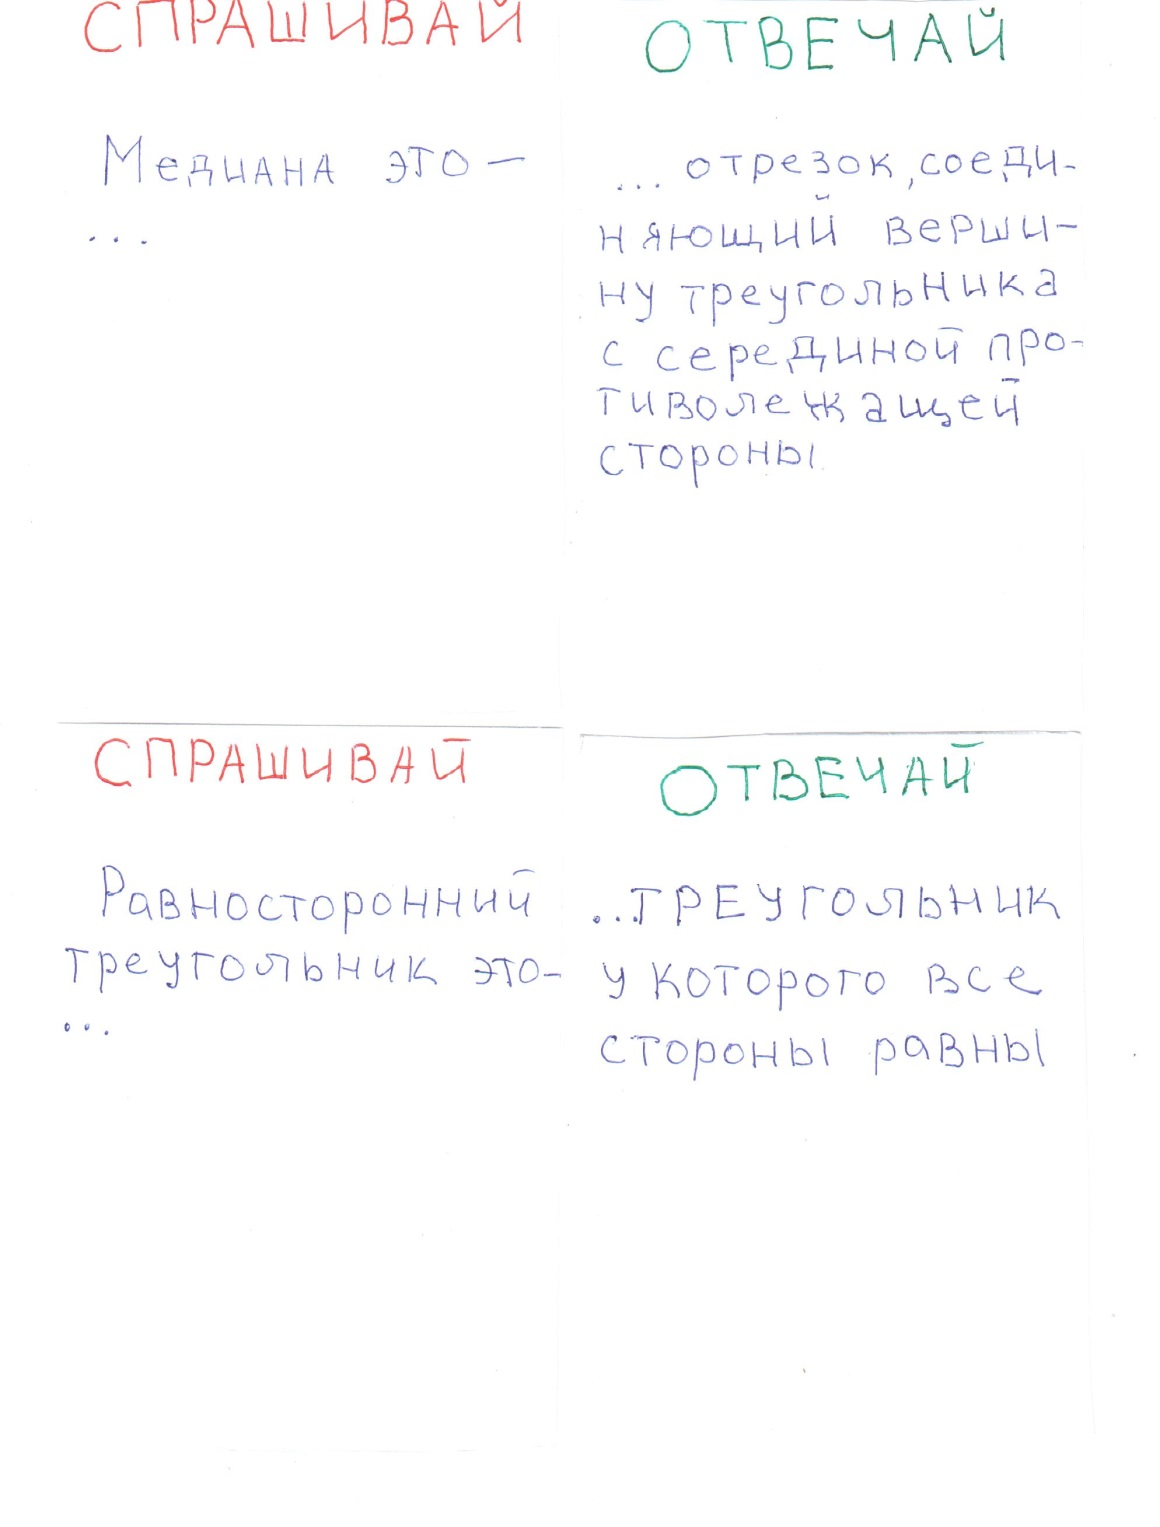 СПРАШИВАЙ
Медиана это –
...
ОТВЕЧАЙ
... отрезок, соеди-
няющий верши-
ну треугольника
с серединой про-
тиволежащей
стороны
СПРАШИВАЙ
Равносторонний
треугольник это-
...
ОТВЕЧАЙ
...треугольник
у которого все
стороны равны